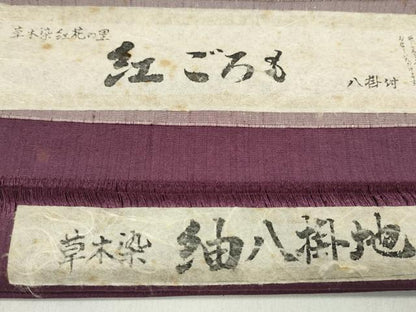 草木染紅花の里
紅ごろも
八掛付
草木染 紬八掛地